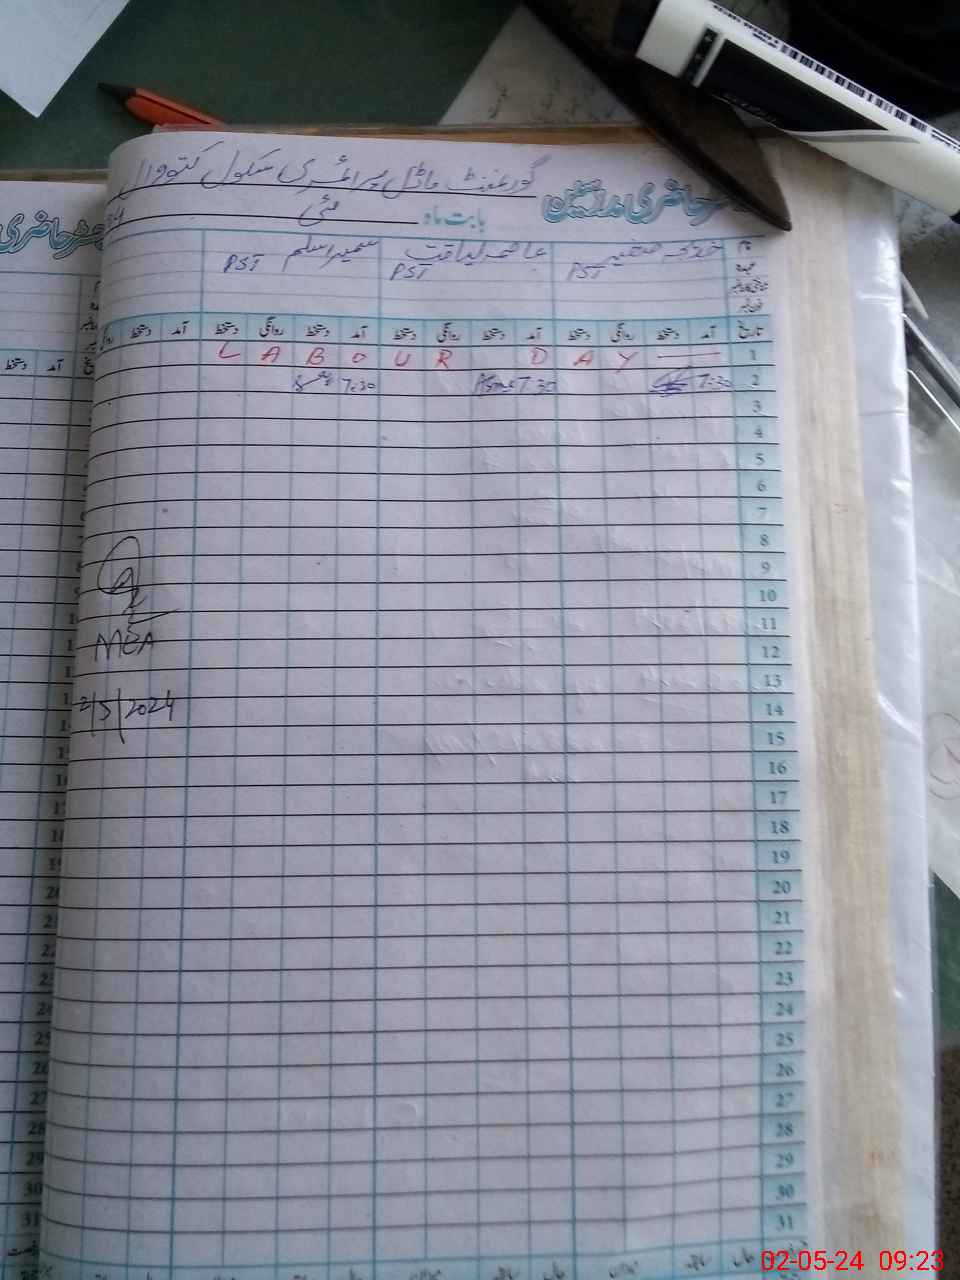 گورنمنٹ ماڈل پرائمری سکول کتووال
رجسٹر حاضری مدرسین بابت ماہ مئی
نام سمیرا سلم عاصمہ لیاقت خدیجہ
عہدہ PST PST PST
تاریخ آمد دستخط روانگی دستخط آمد دستخط روانگی دستخط آمد دستخط روانگی دستخط آمد دستخط
1 LABOUR DAY
2 7:30 7:30 7:30
3
4
5
6
7
8
9
10
11
12
13
14
15
16
17
18
19
20
21
22
23
24
25
26
27
28
29
30
31
MEA
2/5/2024
02-05-24 09:23